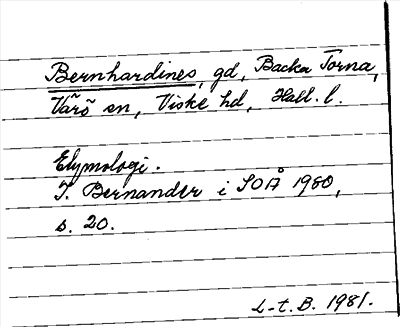 Bernhardines, gd, Backa Torna,
Värö sn, Viske hd, Hall. l.
Etymologi.
T. Bernander i SOÅ 1980,
s. 20.
L-t. B. 1981.